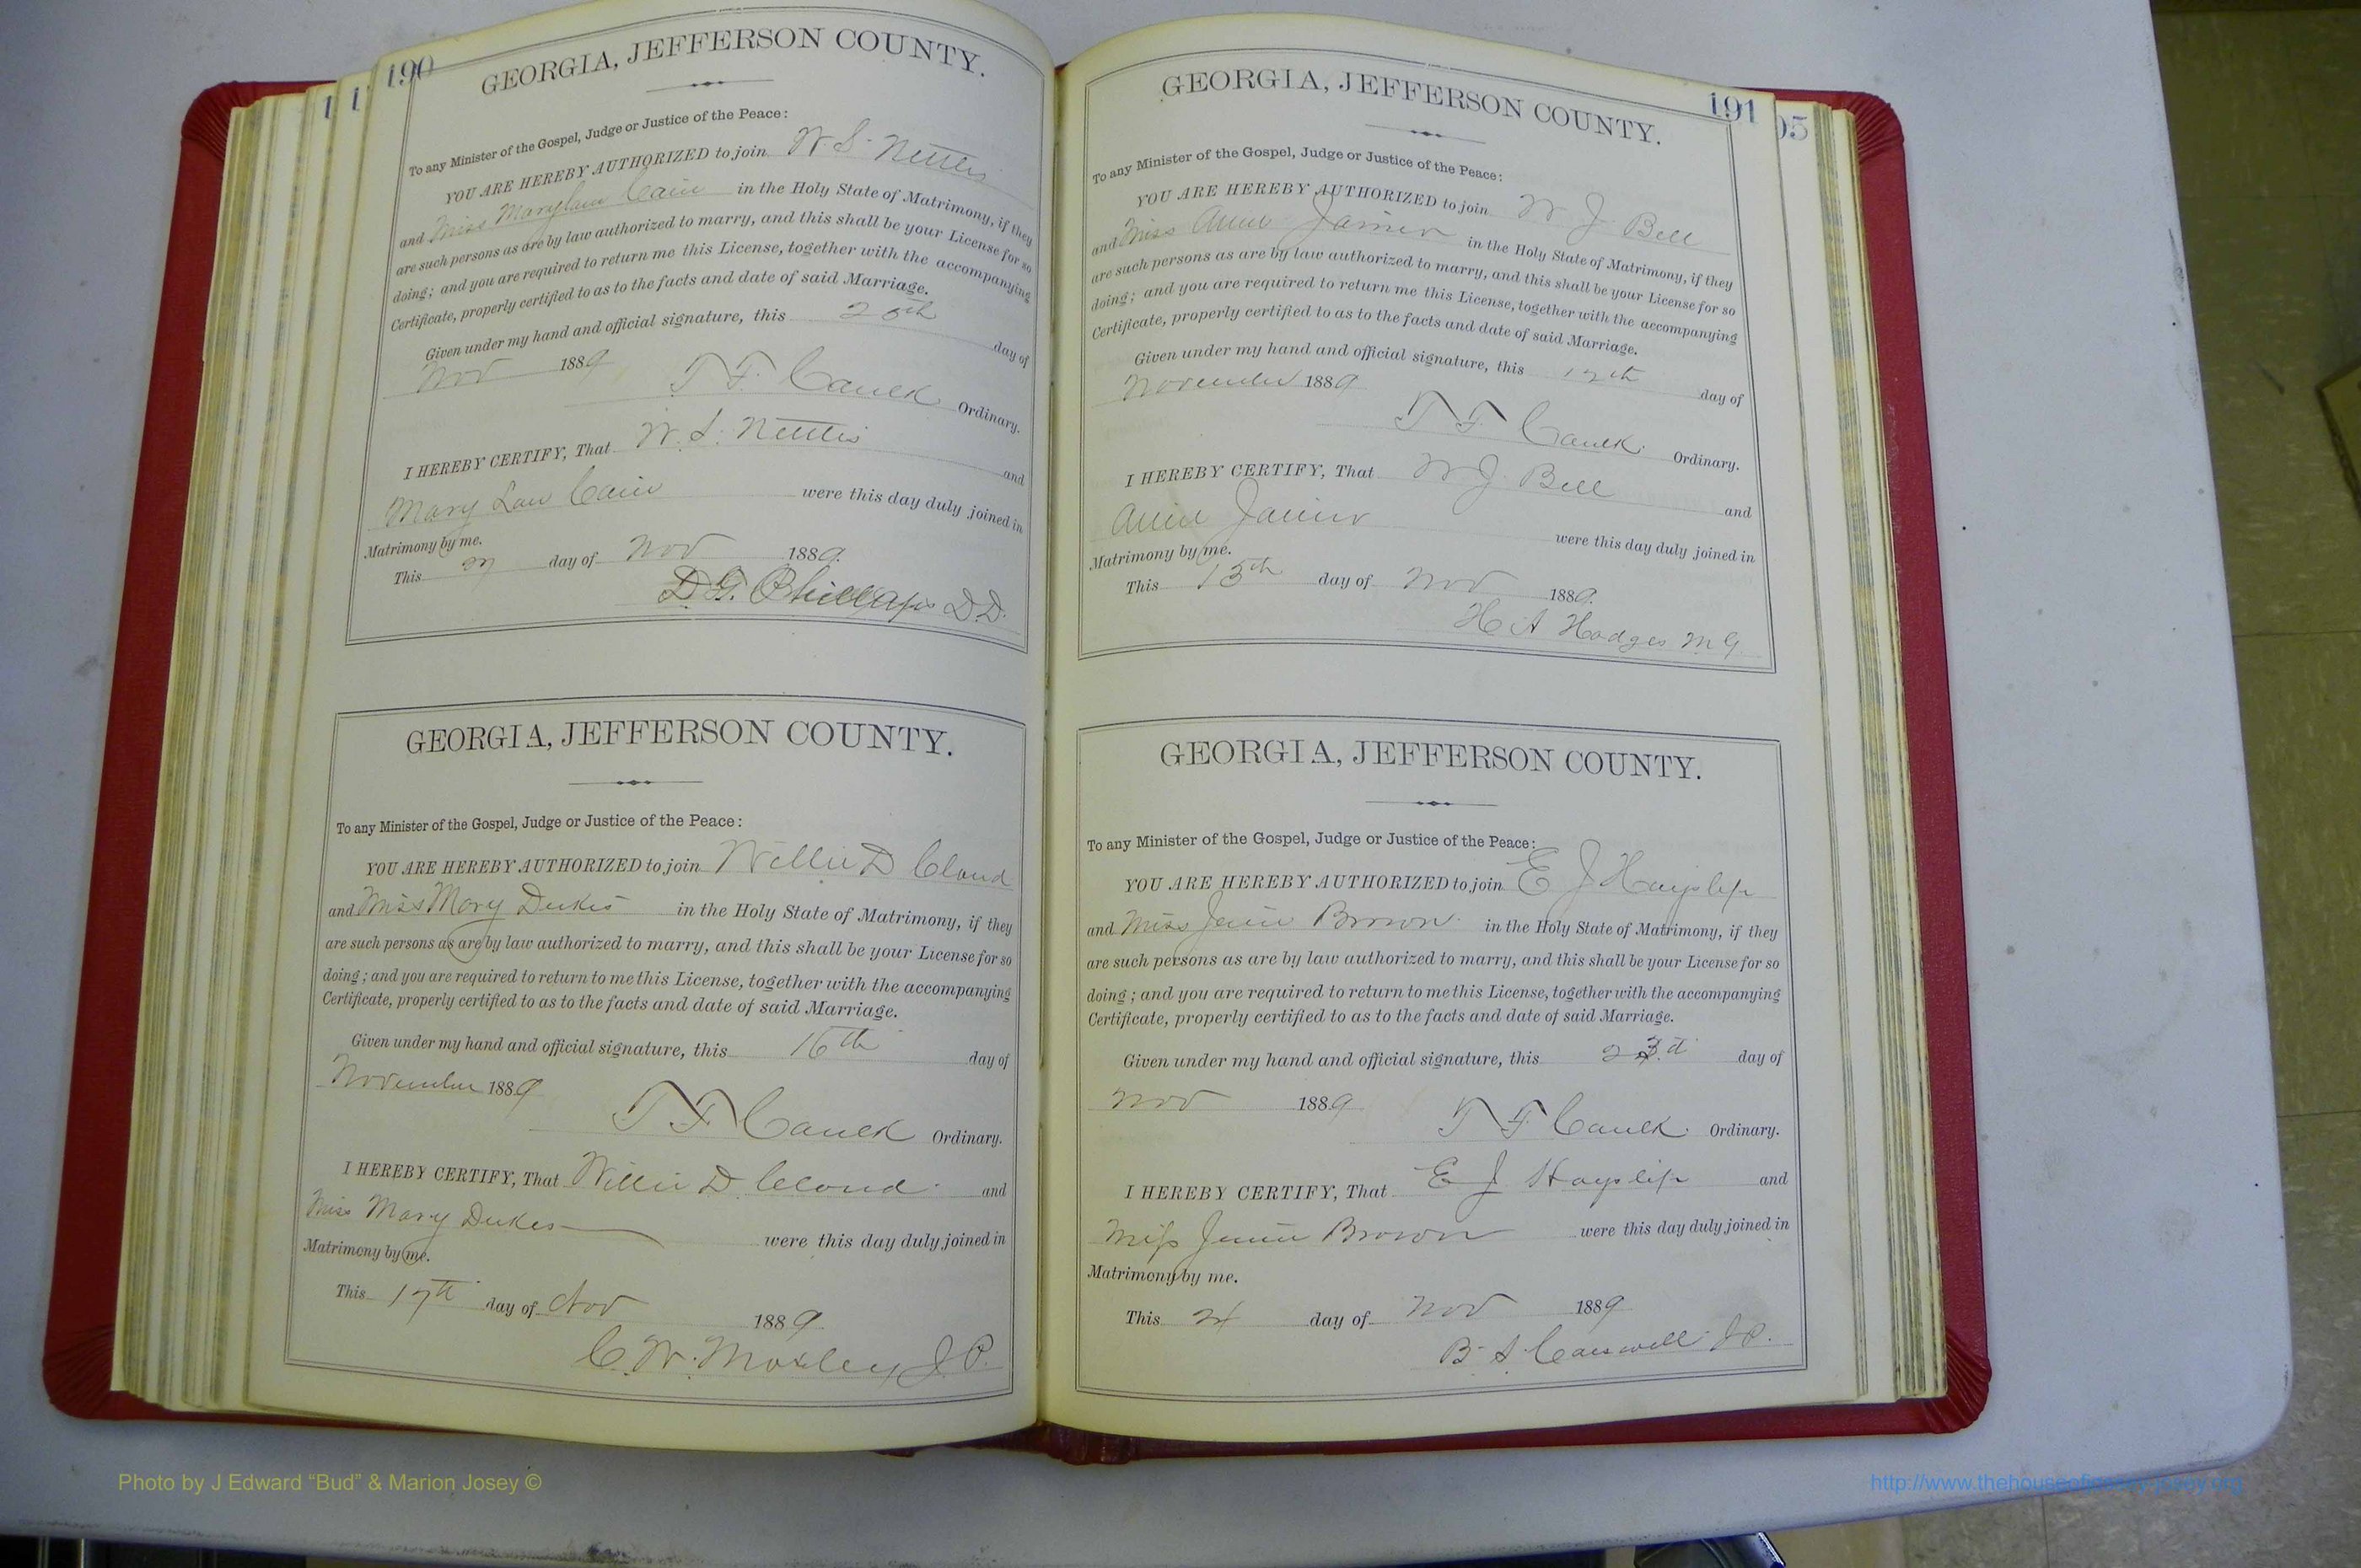 190
GEORGIA, JEFFERSON COUNTY.
To any Minister of the Gospel, Judge or Justice of the Peace:
YOU ARE HEREBY AUTHORIZED to join W. S. Nettles
and Miss Marylaw Cain in the Holy State of Matrimony, if they
are such persons as are by law authorized to marry, and this shall be your License for so
doing; and you are required to return me this License, together with the accompanying
Certificate, properly certified to as to the facts and date of said Marriage.
Given under my hand and official signature, this day of
Nov 1889
T F Caulk Ordinary.
I HEREBY CERTIFY, That W. S. Nettles and
Mary Law Cain were this day duly joined in
Matrimony by me.
This 27 day of Nov 1889.
D. G. Phillips D.D.
GEORGIA, JEFFERSON COUNTY.
To any Minister of the Gospel, Judge or Justice of the Peace:
YOU ARE HEREBY AUTHORIZED to join Willie D Cloud
and Miss Mary Dukes in the Holy State of Matrimony, if they
are such persons as are by law authorized to marry, and this shall be your License for so
doing; and you are required to return to me this License, together with the accompanying
Certificate, properly certified to as to the facts and date of said Marriage.
Given under my hand and official signature, this 16th day of
November 1889
T F Caulk Ordinary.
I HEREBY CERTIFY, That Willie D. Cloud and
Miss Mary Dukes were this day duly joined in
Matrimony by me.
This 17th day of Nov 1889
C. W. Moxley J.P.
191
GEORGIA, JEFFERSON COUNTY.
To any Minister of the Gospel, Judge or Justice of the Peace:
YOU ARE HEREBY AUTHORIZED to join W J Bell
and Miss Annie in the Holy State of Matrimony, if they
are such persons as are by law authorized to marry, and this shall be your License for so
doing; and you are required to return me this License, together with the accompanying
Certificate, properly certified to as to the facts and date of said Marriage.
Given under my hand and official signature, this 12th day of
November 1889
T F Caulk. Ordinary.
I HEREBY CERTIFY, That W J Bell and
Annie were this day duly joined in
Matrimony by me.
This 13th day of Nov 1889.
H A Hodges M.G.
GEORGIA, JEFFERSON COUNTY.
To any Minister of the Gospel, Judge or Justice of the Peace:
YOU ARE HEREBY AUTHORIZED to join E J Hayslip
and Miss Jennie Brown in the Holy State of Matrimony, if they
are such persons as are by law authorized to marry, and this shall be your License for so
doing; and you are required to return to me this License, together with the accompanying
Certificate, properly certified to as to the facts and date of said Marriage.
Given under my hand and official signature, this 23.d day of
Nov 1889
T F Caulk. Ordinary.
I HEREBY CERTIFY, That E J Hayslip and
Miss Jennie Brown were this day duly joined in
Matrimony by me.
This 24 day of Nov 1889
B. S. Carswell J.P.
Photo by J Edward “Bud” & Marion Josey ©